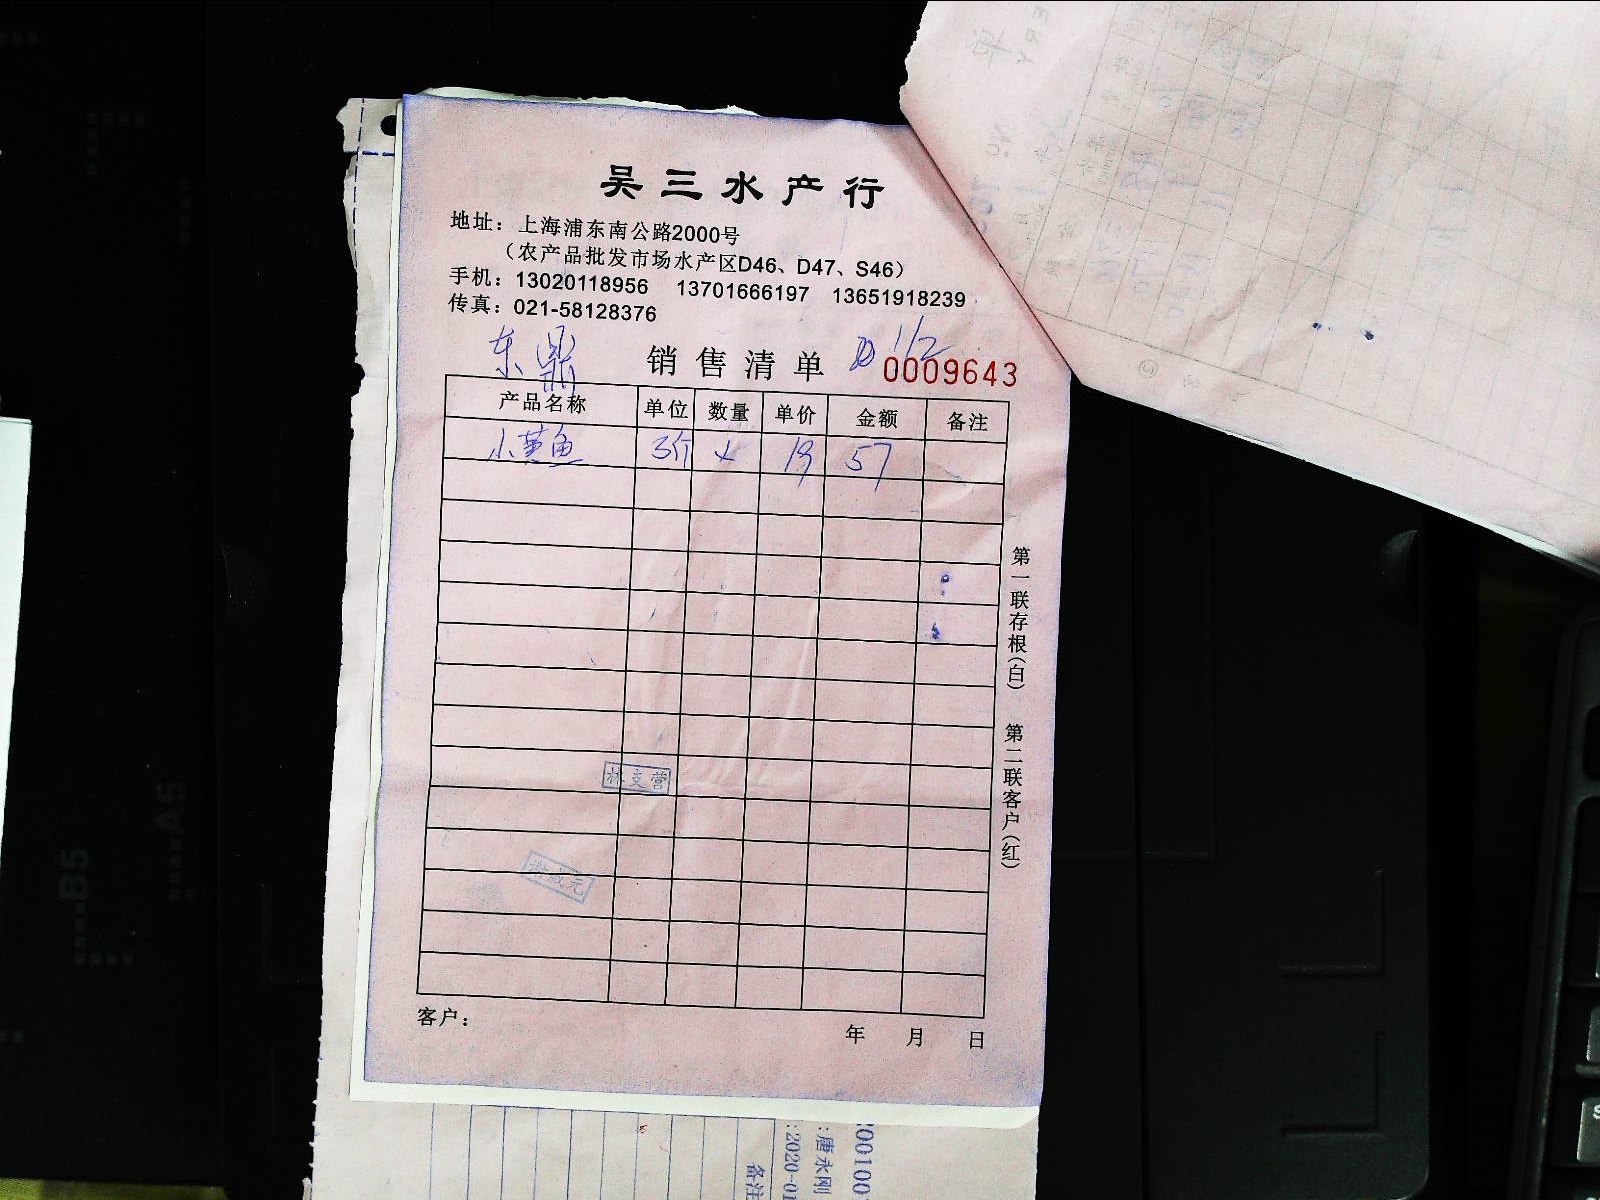 吴三水产行
地址：上海浦东南公路2000号
（农产品批发市场水产区D46、D47、S46）
手机：13020118956 13701666197 13651918239
传真：021-58128376
东鼎 销售清单 1/2 0009643
产品名称 单位 数量 单价 金额 备注
小黄鱼 3斤 × 19 57
第一联存根(白) 第二联客户(红)
林支营
谢成元
客户： 年 月 日
00100
:唐水刚
:2020-01
备注
B5
A5